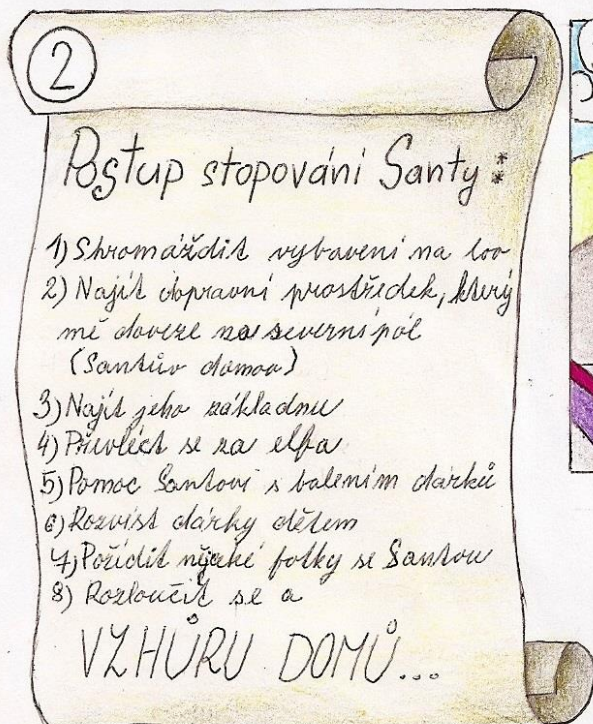 2
Postup stopování Santy:
1) Shromáždit vybavení na lov
2) Najít dopravní prostředek, který
mě doveze na severní pól
(Santův domov)
3) Najít jeho základnu
4) Převléct se za elfa
5) Pomoc Santovi s balením dárků
6) Rozvést dárky dětem
7) Pořídit nějaké fotky se Santou
8) Rozloučit se a
VZHŮRU DOMŮ...